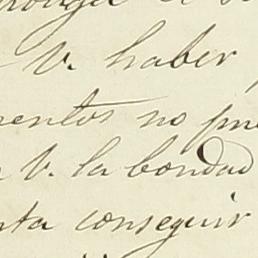 V. haber
mentos no pu
V. la bondad
nta conseguir